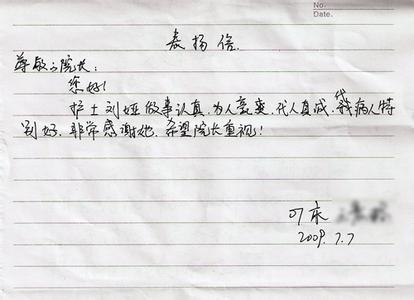 No.
Date.
表扬信
尊敬的院长:
您好!
护士刘娅做事认真,为人亲爱,代人真成,代我病人特
别好,非常感谢她,希望院长重视!
叮床
2009.7.7